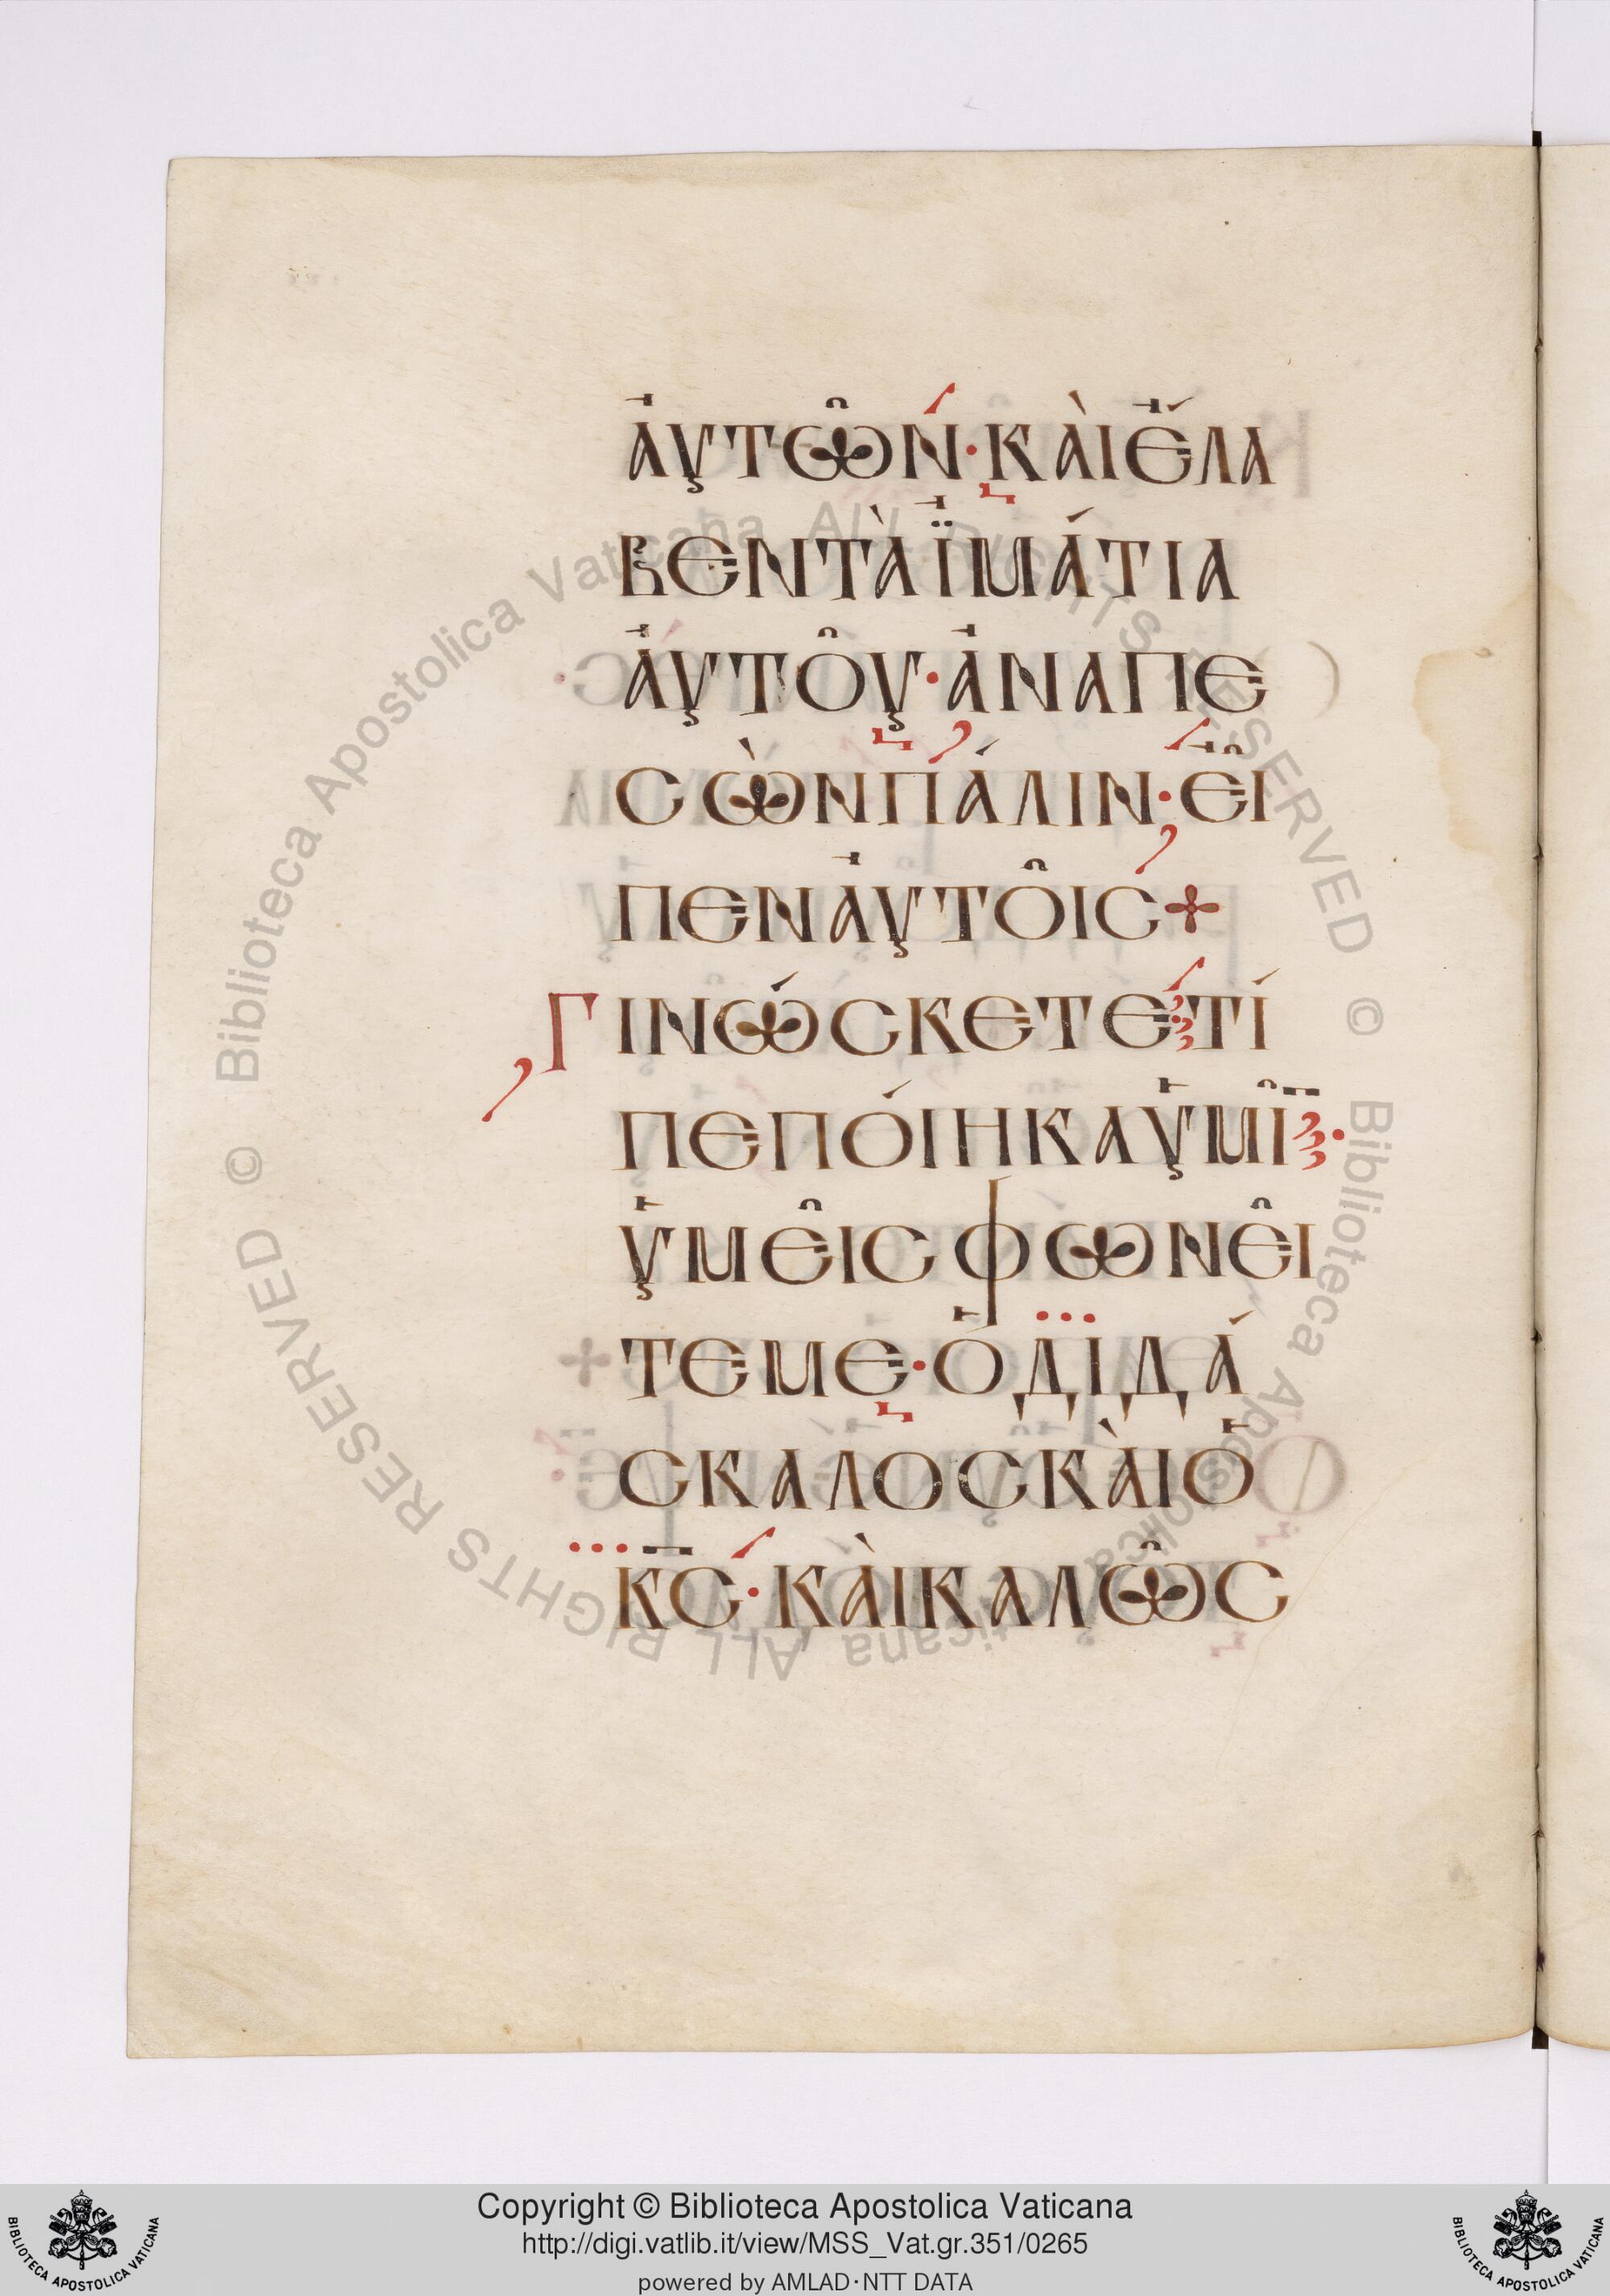 ἀυτῶν·κὰιἔλα
βεντὰϊμάτια
ἀυτȏυ·ἀναπε
σὼνπάλιν·εἶι
πεναυτȏις+
Γινώσκετετί
πεπόιηκαὑμῖ·
ὑμε̑ισφωνε̑ι
τεμε·ὁδιδά
σκαλοσκὰιὁ
κ̅ς̅·κὰικαλῶς
© Biblioteca Apostolica Vaticana ALL RIGHTS RESERVED © Biblioteca Apostolica Vaticana ALL RIGHTS RESERVED
Copyright © Biblioteca Apostolica Vaticana
http://digi.vatlib.it/view/MSS_Vat.gr.351/0265
powered by AMLAD·NTT DATA
BIBLIOTECA APOSTOLICA VATICANA
BIBLIOTECA APOSTOLICA VATICANA